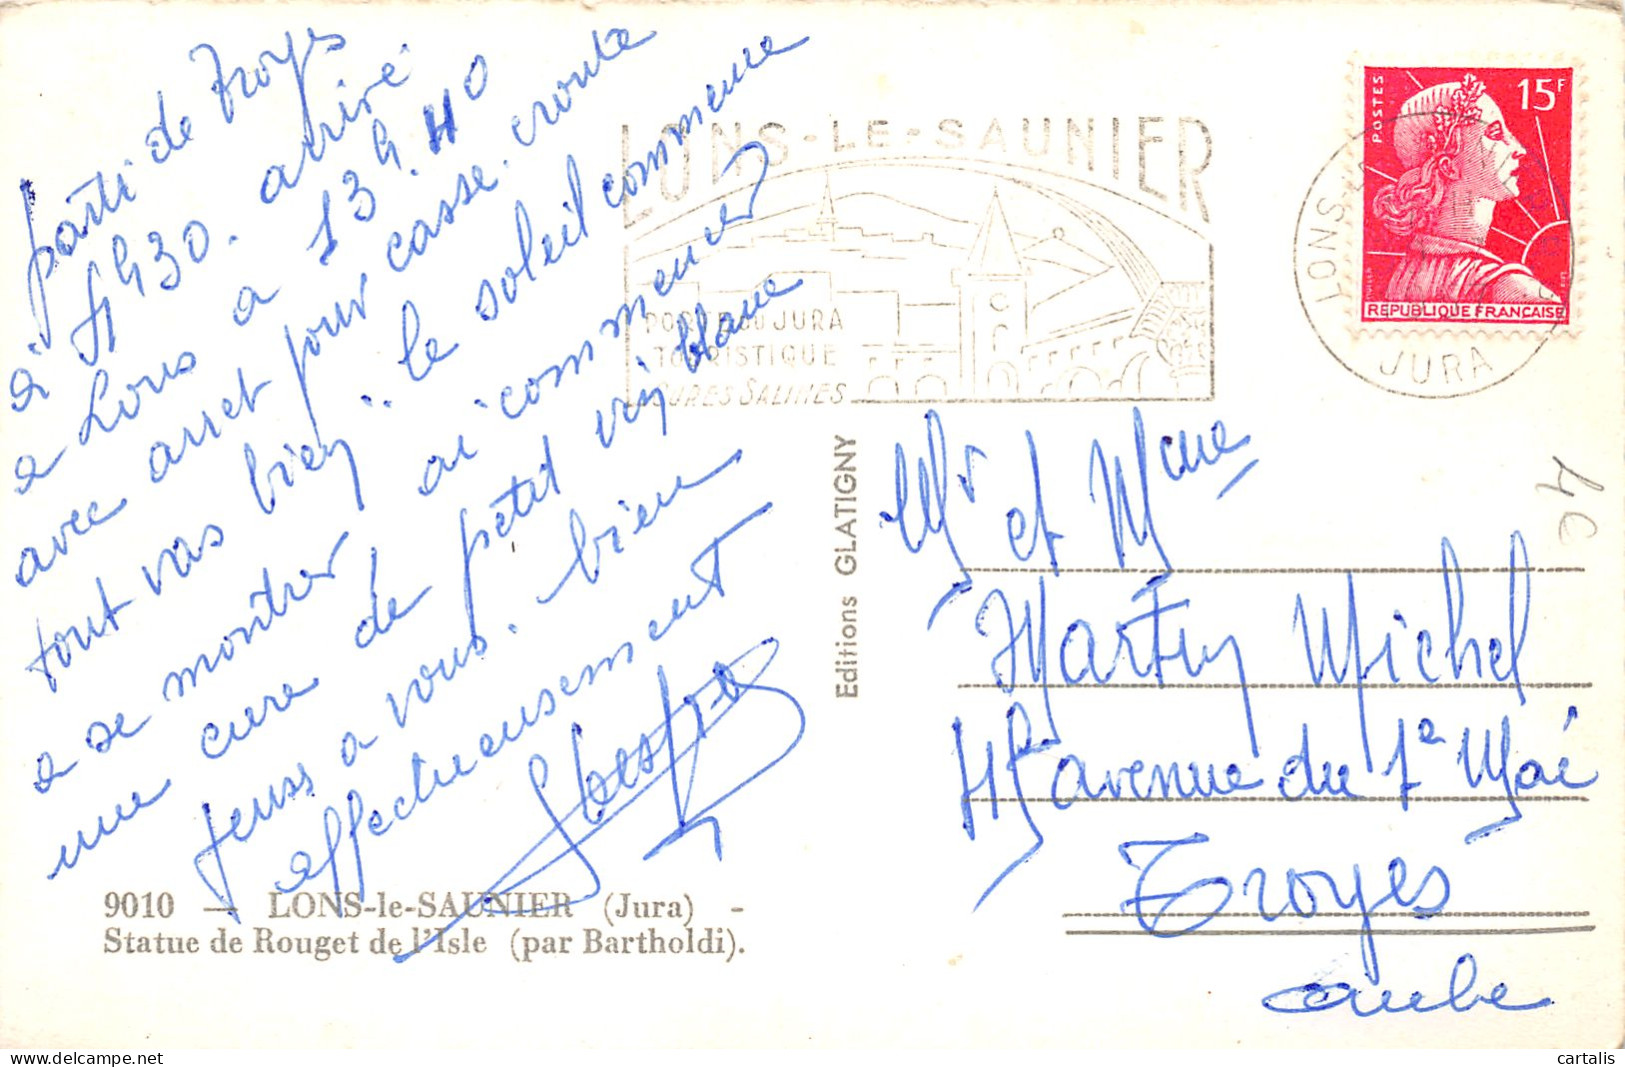 parti de Troyes
a 4h30. arrivé
a Lons a 13h.40
avec arret pour casse. croute
tout vas bien le soleil commence
a se montrer ai commencer
une cure de petit vin blanc
a vous. bien
affectueusement
9010 — LONS-le-SAUNIER (Jura) -
Statue de Rouget de l'Isle (par Bartholdi).
Editions GLATIGNY
LONS-LE-SAUNIER
PORTE DU JURA
TOURISTIQUE
CURES SALINES
LONS-LE
JURA
POSTES
15F
REPUBLIQUE FRANCAISE
Mr et Mme
Martin Michel
45 avenue du 1e Mai
Troyes
aube
cartalis